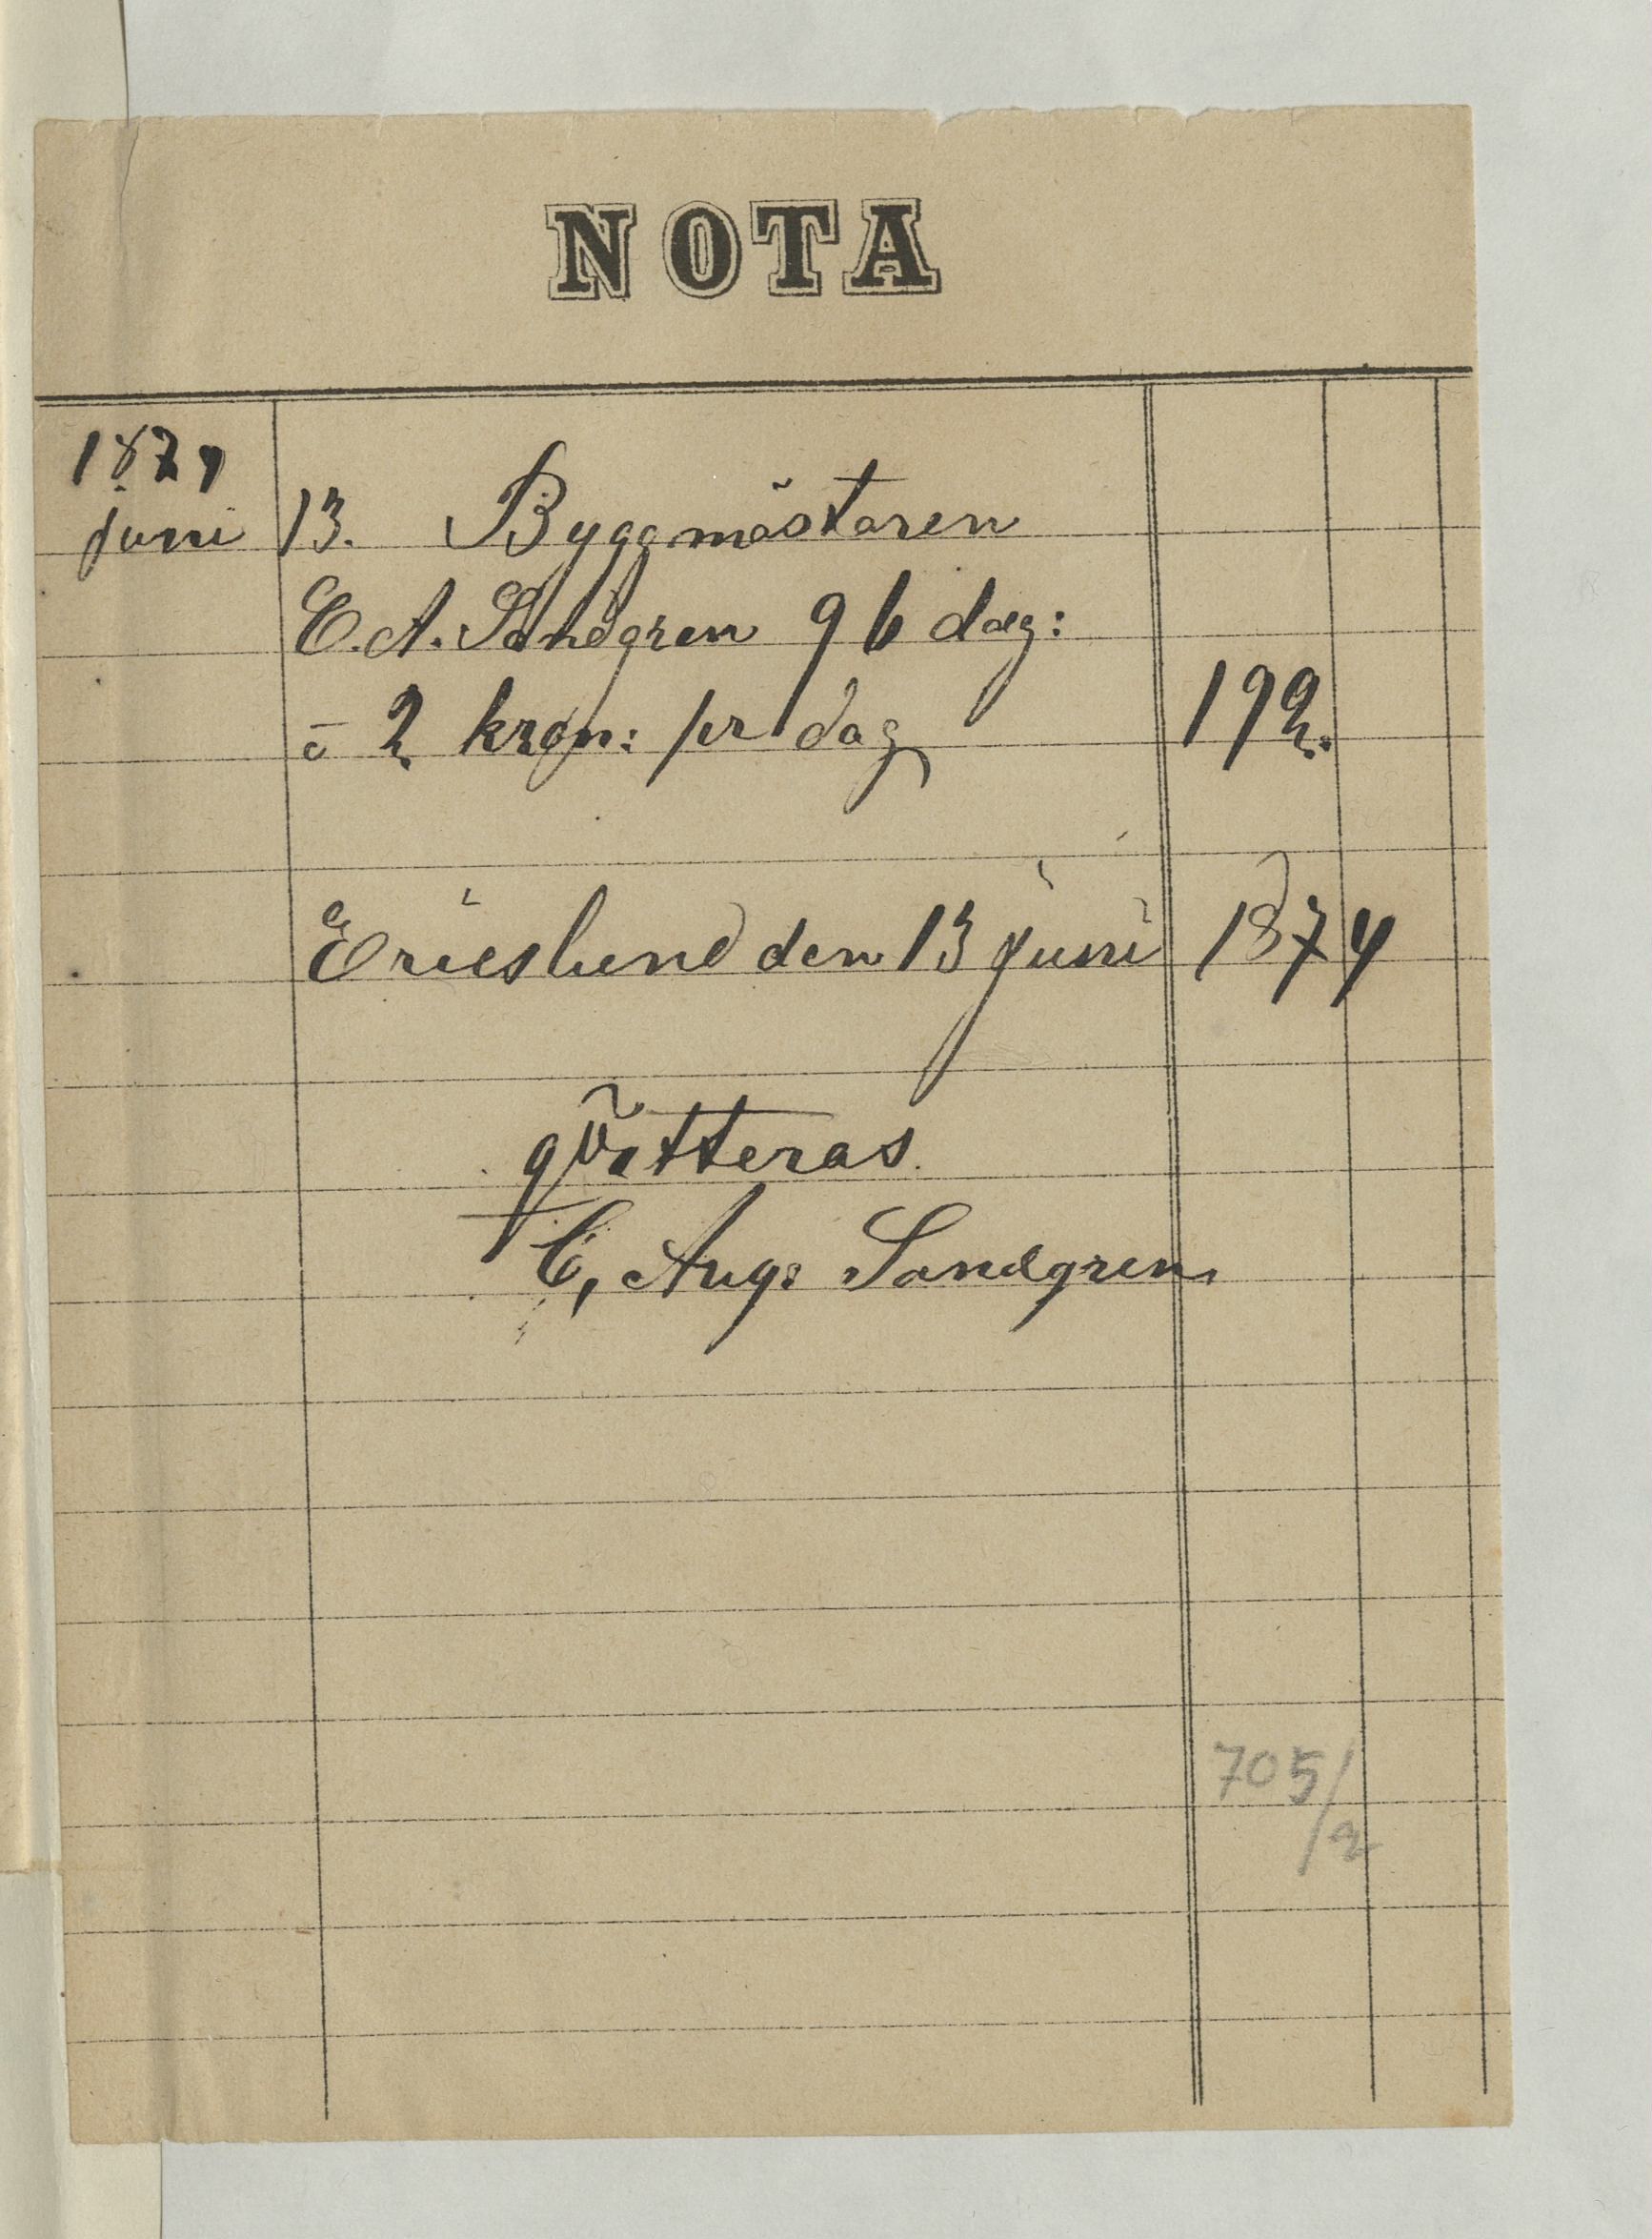 NOTA
1874
juni 13. Byggmästaren
C. A. Sandgren 96 dag:
a 2 kron: pr dag 192.
Ericslund den 13 juni 1874
qvitteras.
C, Aug: Sandgren
705/2